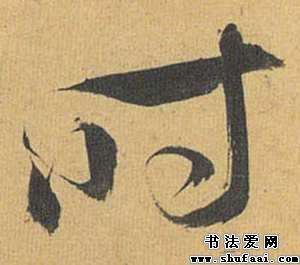 时
书法爱网
www.shufaai.com